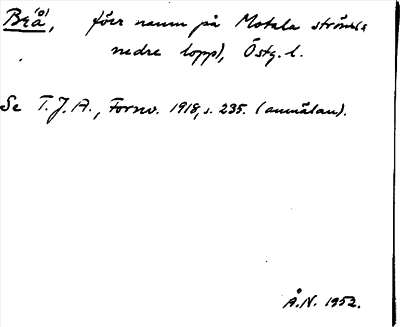 Brå, förr namn på Motala ströms
nedre lopp), Östg. l.
Se T.J.A., Fornv. 1918, s. 235. (anmälan).
Å.N. 1952.